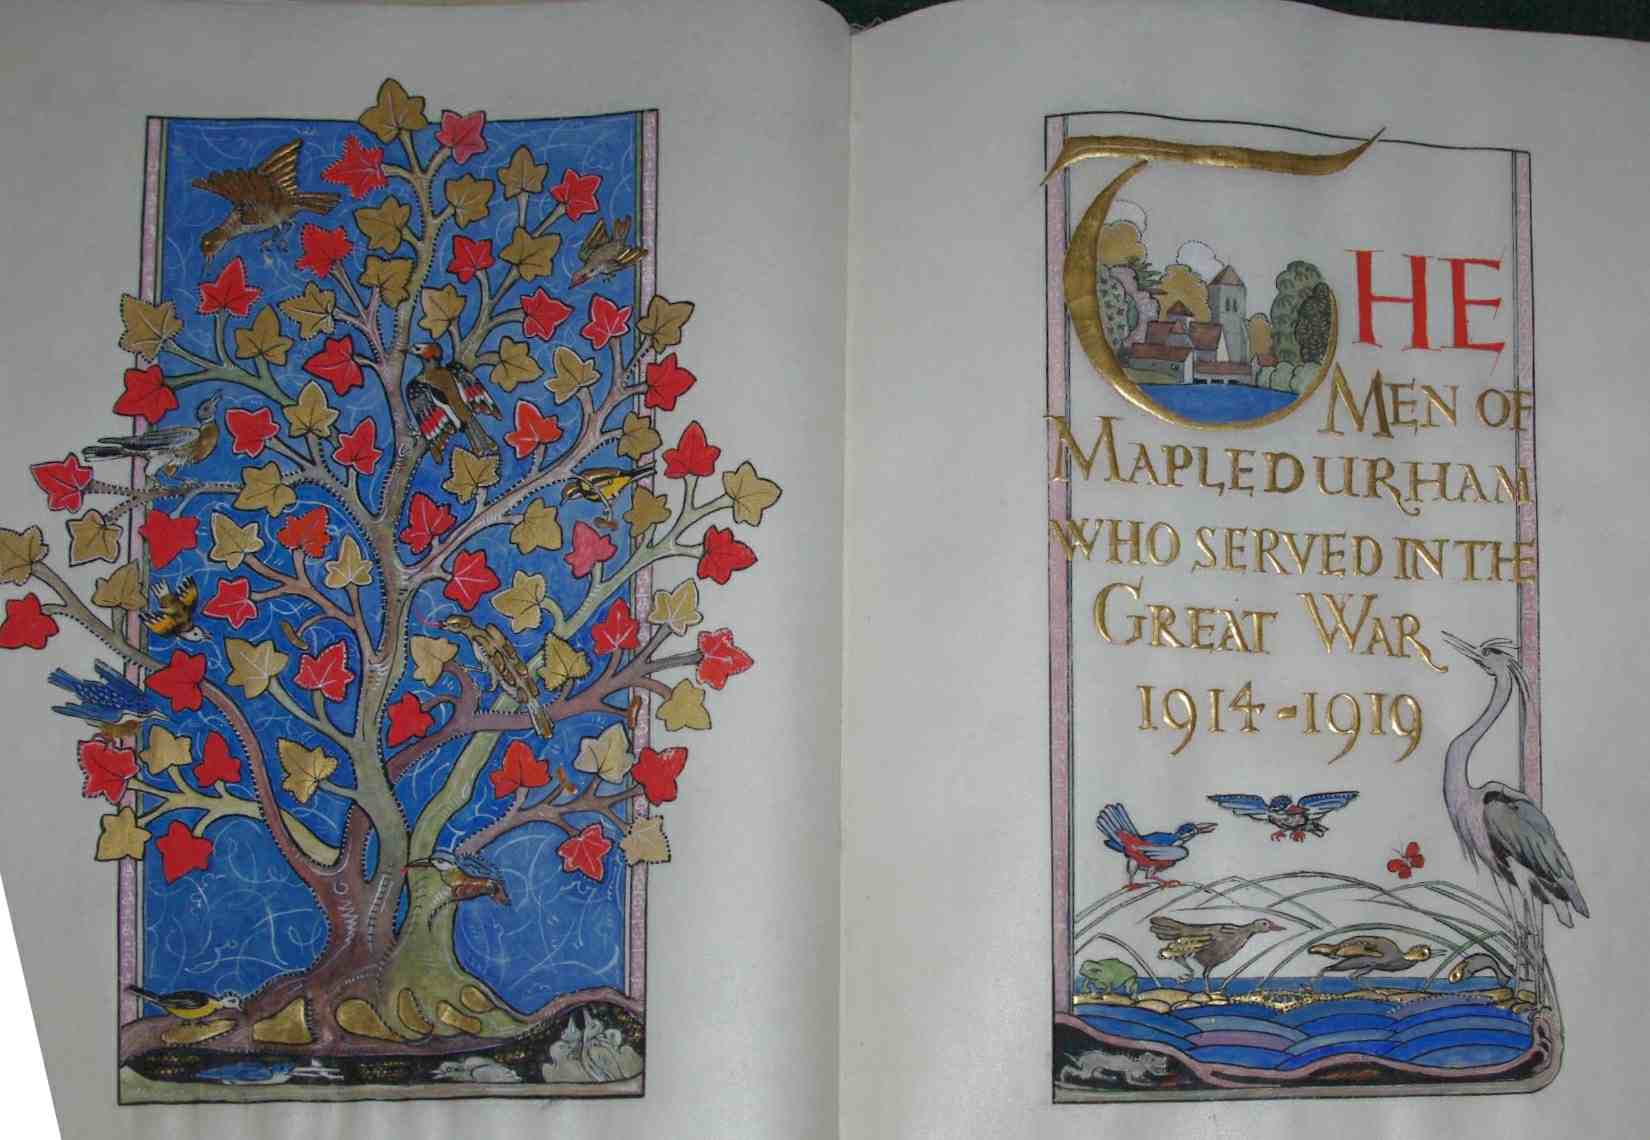 THE
MEN OF
MAPLEDURHAM
WHO SERVED IN THE
GREAT WAR
1914-1919